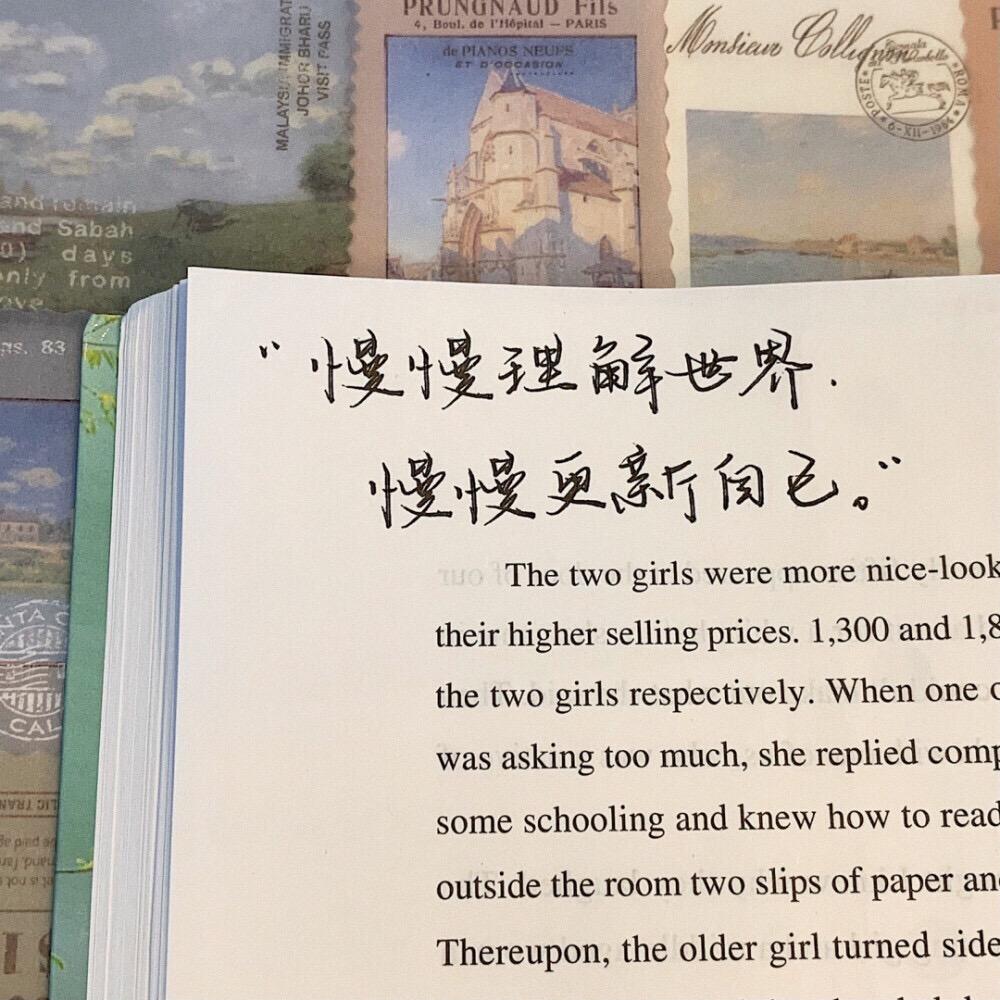 PRUNGNAUD Fils
4, Boul. de l'Hôpital — PARIS
de PIANOS NEUFS
ET D'OCCASION
Monsieur Collignon
POSTE
ROMA
9-XII-1994
MALAYSIA IMMIGRAT
JOHOR BHARU
VISIT PASS
and remain
and Sabah
0) days
only from
ove
gs. 83
"慢慢理解世界.
慢慢更新自己。"
The two girls were more nice-look
their higher selling prices. 1,300 and 1,8
the two girls respectively. When one o
was asking too much, she replied comp
some schooling and knew how to read
outside the room two slips of paper an
Thereupon, the older girl turned side
NTA C
CAL